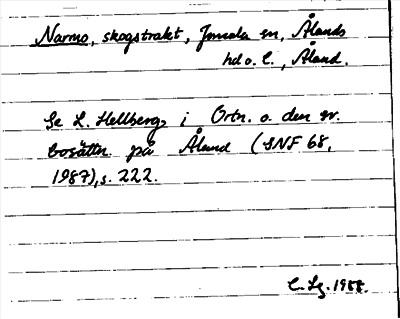 Narmo, skogstrakt, Jomala sn, Ålands
hd o. l., Åland.
Se L. Hellberg, i Ortn. o. den sv.
bosättn. på Åland (SNF 68,
1987), s. 222.
C. Lg. 1988.